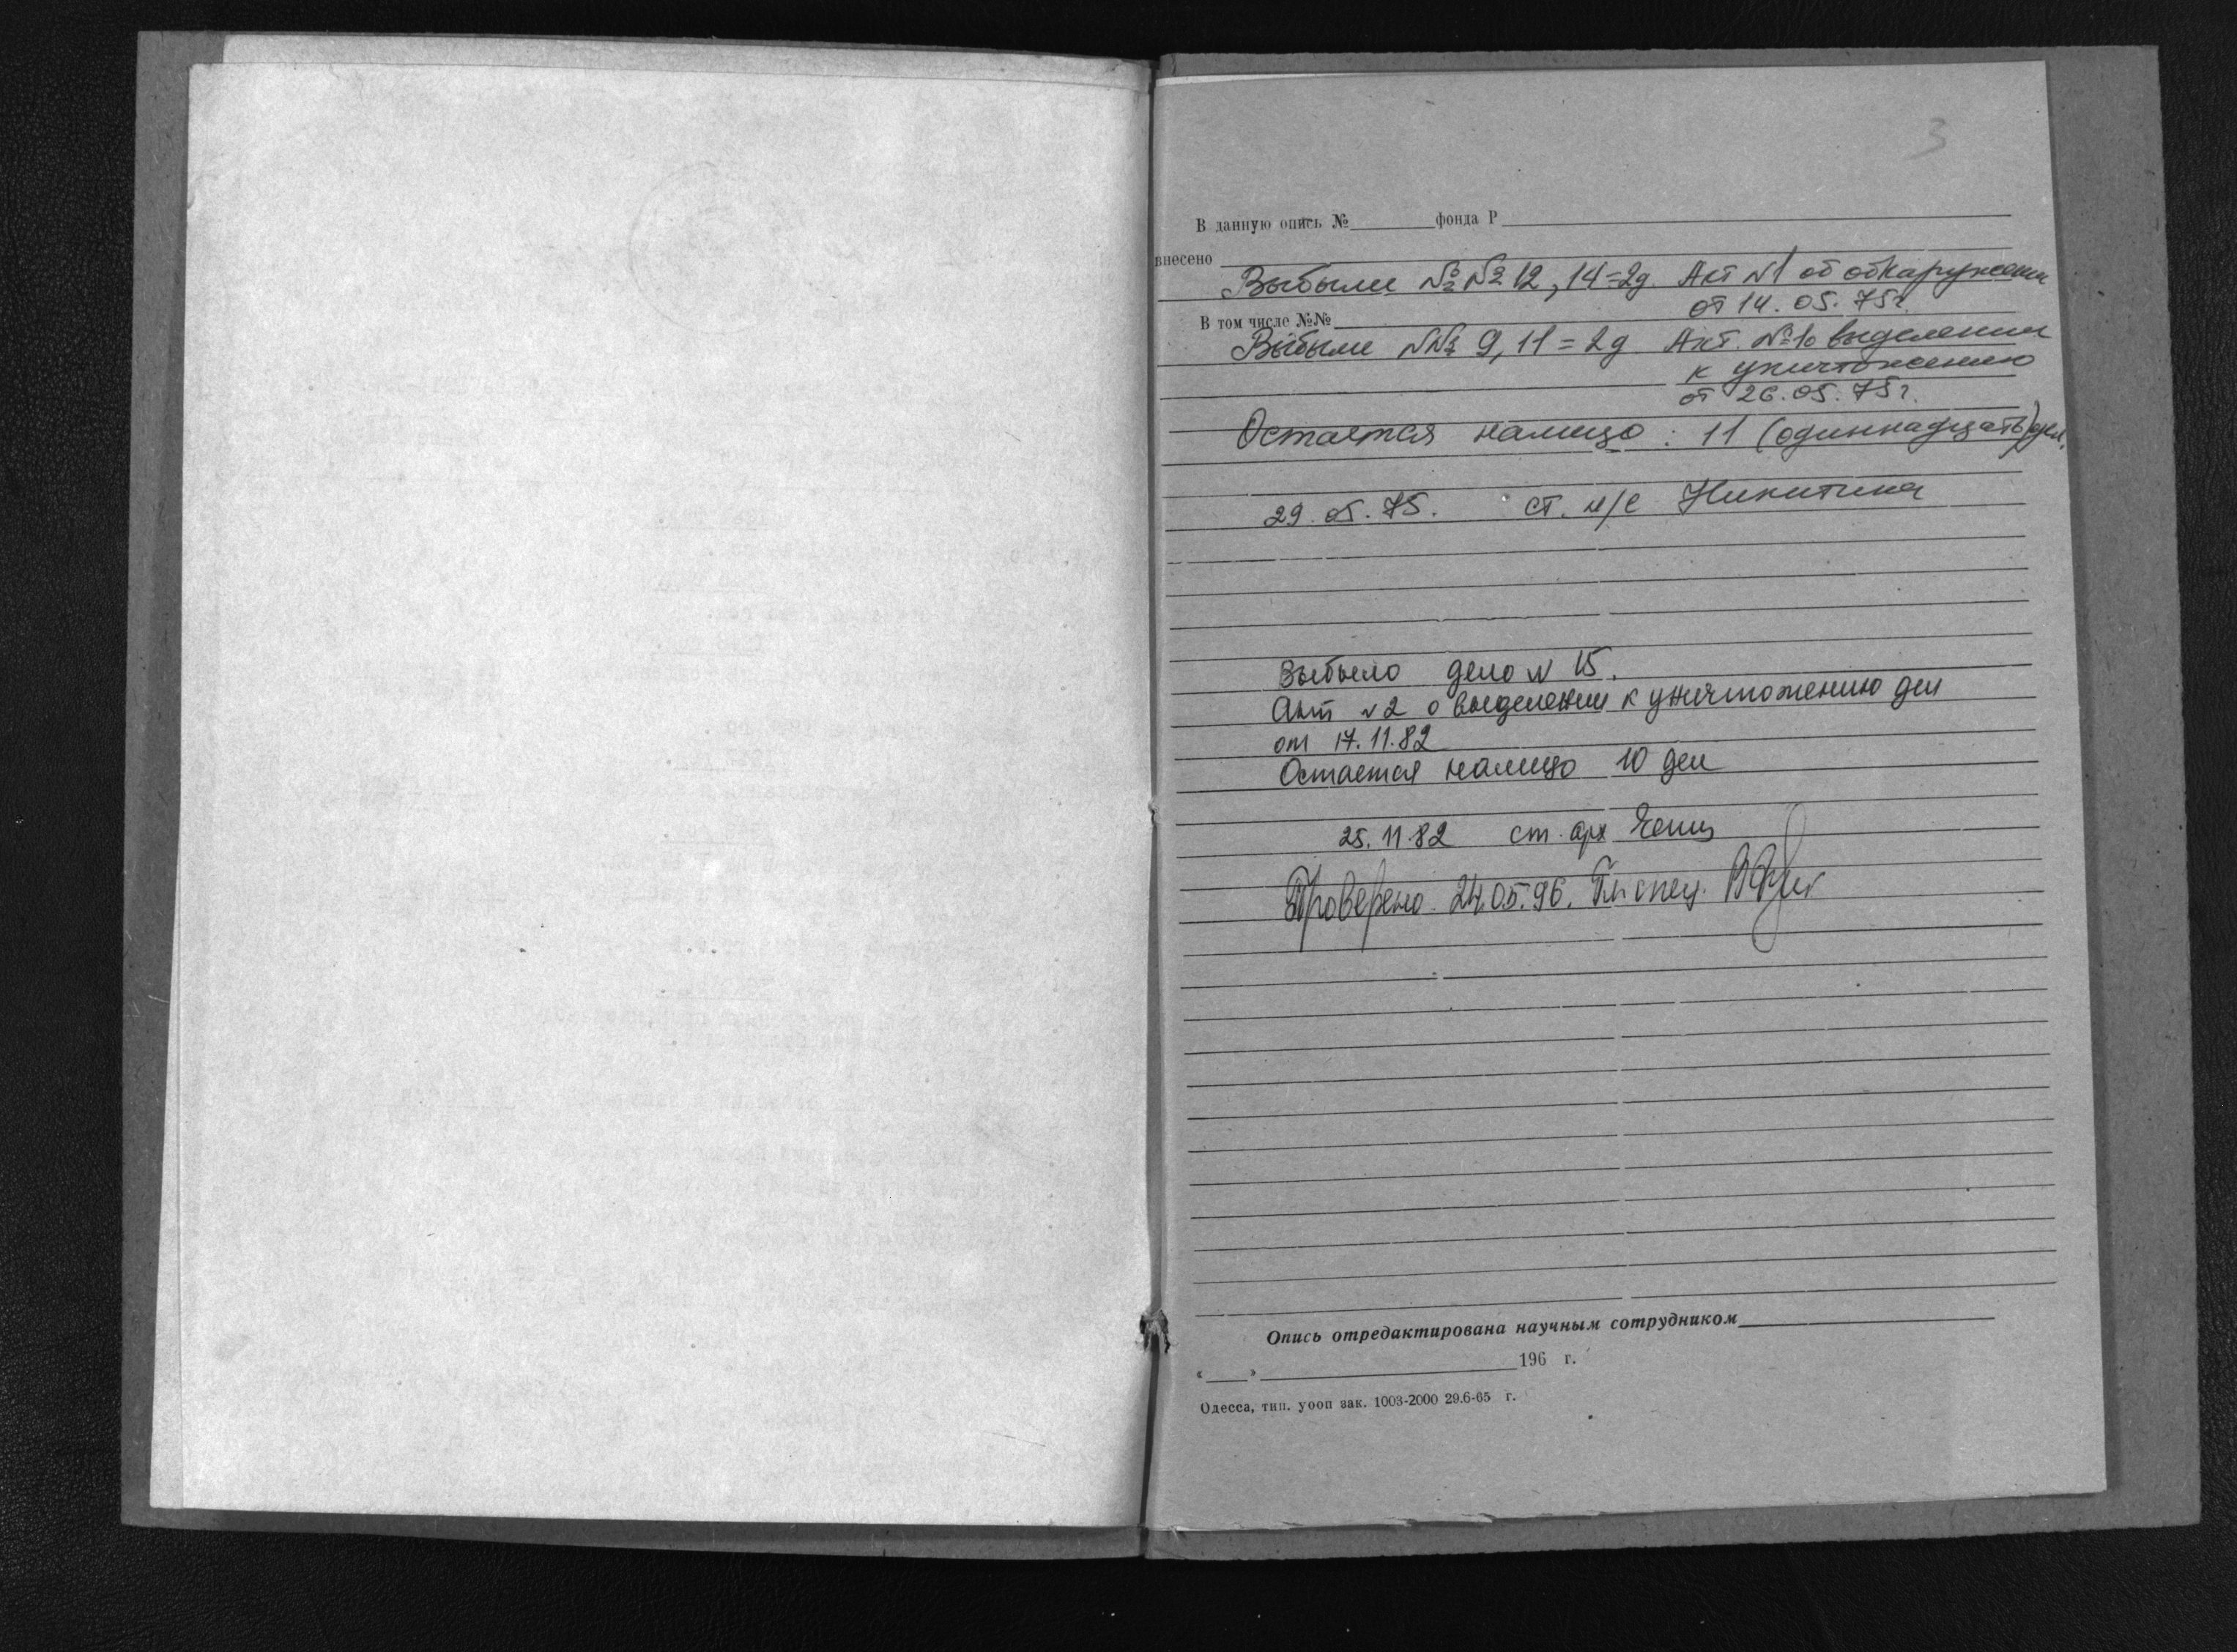 3
В данную опись № фонда Р
внесено
Выбыли №№ 12, 14 = 2д. Акт N1 об обнаружении
от 14.05.75г.
В том числе №№
Выбыли №№ 9, 11 = 2д Акт №1 о выделении
к уничтожению
от 26.05.75г.
Остается налицо: 11 (одиннадцать) дел.
29.05.75. ст. н/с Никитина
Выбыло дело N 15.
Акт N2 о выделении к уничтожению дел
от 17.11.82
Остается налицо 10 дел
25.11.82 ст. арх
Проверено 24.05.96. Гл. спец.
Опись отредактирована научным сотрудником
« » 196 г.
Одесса, тип. уооп зак. 1003-2000 29.6-65 г.